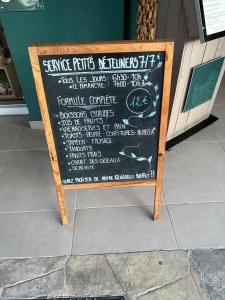 SERVICE PETITS DÉJEUNERS 7/7
- TOUS LES JOURS : 6H30 - 10H
- LE DIMANCHE : 7H00 - 10H
FORMULE COMPLÈTE 12€
- BOISSONS CHAUDES
- JUS DE FRUITS
- VIENNOISERIES ET PAIN
- TOASTS - BEURRE - CONFITURES - MIEL
- JAMBON - FROMAGE
- YAOURTS
- FRUITS FRAIS
- CHANT DES OISEAUX
- SÉRÉNITÉ
VENEZ PROFITER DE NOTRE BUFFET !!